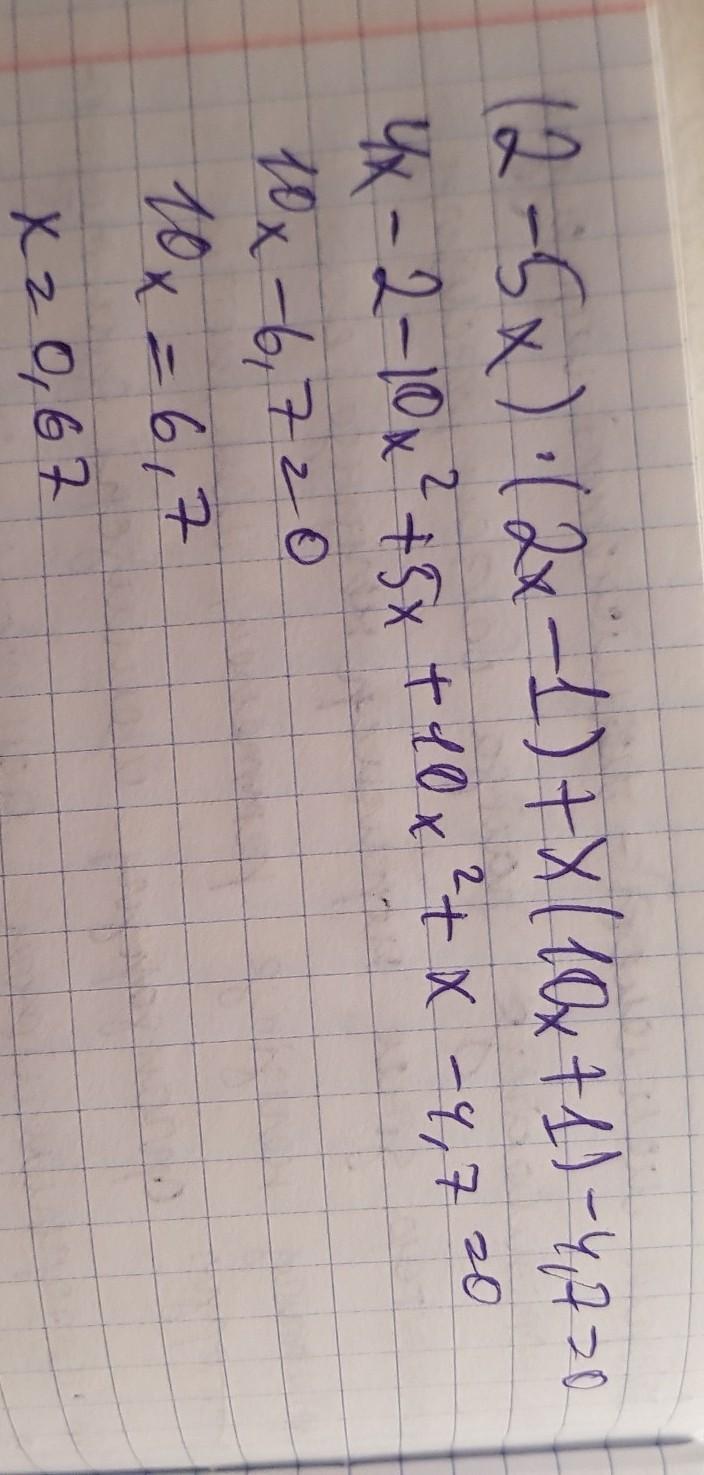 (2-5x)·(2x-1)+x(10x+1)-4,7=0
4x-2-10x²+5x+10x²+x-4,7=0
10x-6,7=0
10x=6,7
x=0,67